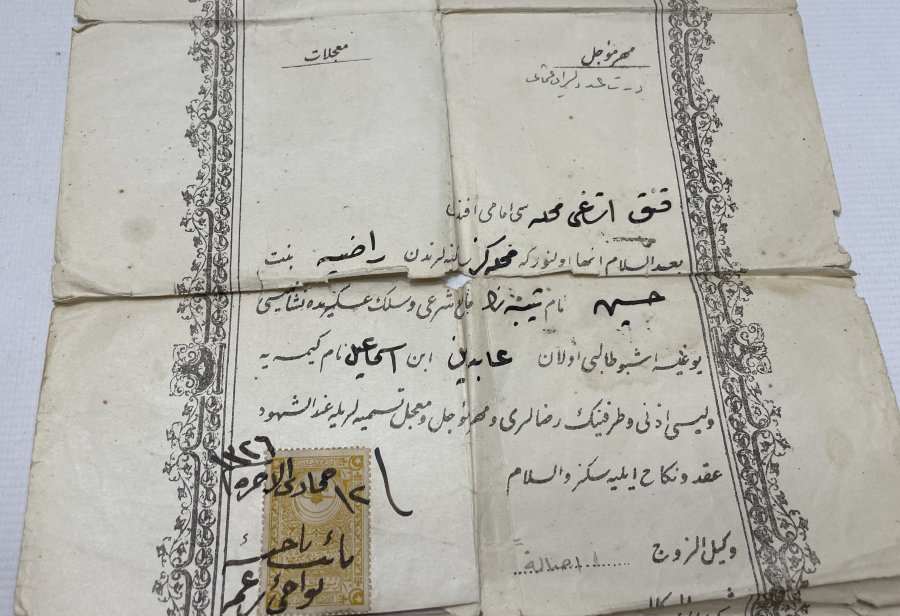 مهر مؤجل
معجلات
محله سی امامی افندی
بعد السلام انها اولنور که محله کز ساکنه لرندن راضیه بنت
حسین نام ثیبه نك مانع شرعی و سلك عسكریده نشانلیسی
یوغیسه اشبو طالبی اولان عابدین ابن اسماعیل نام کیمسه یه
ولیسی اذنی و طرفینك رضالری و مهر مؤجل و معجل تسمیه لریله عند الشهود
عقد و نكاح ایلیه سكز والسلام
١٢ جمادی الاخره ١٣٢٦
نائب ناحیهٔ
نواحی
وكیل الزوج
اصالة